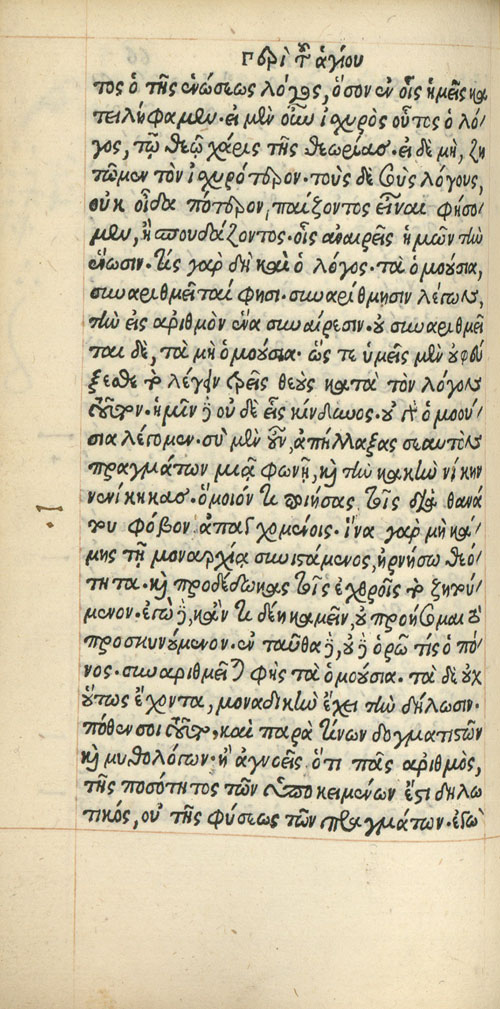 Περὶ τοῦ ἁγίου
τος ὁ τῆς ἑνώσεως λόγος, ὅσον ἐν οἷς ἡμεῖς κα
τειλήφαμεν· εἰ μὲν οὖν ἰσχυρὸς οὗτος ὁ λό
γος, τῷ θεῷ χάρις τῆς θεωρίας· εἰ δὲ μὴ, ζη
τῶμεν τὸν ἰσχυρότερον· τοὺς δὲ σοὺς λόγους,
οὐκ οἶδα πότερον, παίζοντος εἶναι φήσο
μεν, ἢ σπουδάζοντος· οἷς ἀναιρεῖς ἡμῶν τὴν
ἕνωσιν· τίς γὰρ δὴ καὶ ὁ λόγος· τὰ ὁμούσια,
συναριθμεῖταί φησι· συναρίθμησιν λέγων,
τὴν εἰς ἀριθμὸν ἕνα συναίρεσιν· οὐ συναριθμεῖ
ται δὲ, τὰ μὴ ὁμούσια· ὥς τε ὑμεῖς μὲν οὐ φεύ
ξεσθε τὸ λέγειν τρεῖς θεοὺς κατὰ τὸν λόγον
τοῦτον· ἡμῖν δὲ οὐδὲ εἷς κίνδυνος· οὐ γὰρ ὁμοού
σια λέγομεν· σὺ μὲν οὖν, ἀπήλλαξας σεαυτὸν
πραγμάτων μιᾷ φωνῇ, καὶ τὴν κακὴν νίκην
νενίκηκας· ὅμοιόν τι ποιήσας τοῖς διὰ θανά
του φόβον ἀπαγχομένοις· ἵνα γὰρ μὴ κά
μῃς τῇ μοναρχίᾳ συνιστάμενος, ἠρνήσω θεό
τητα· καὶ προδέδωκας τοῖς ἐχθροῖς τὸ ζητού
μενον· ἐγὼ δὲ, κἄν τι δέῃ καμεῖν, οὐ προήσομαι τὸ
προσκυνούμενον· ἐνταῦθα δὲ, οὐδὲ ὁρῶ τίς ὁ πό
νος· συναριθμεῖται φῂς τὰ ὁμούσια· τὰ δὲ οὐχ
οὕτως ἔχοντα, μοναδικὴν ἔχει τὴν δήλωσιν·
πόθεν σοι τοῦτο· καὶ παρὰ τίνων δογματιστῶν
καὶ μυθολόγων· ἢ ἀγνοεῖς ὅτι πᾶς ἀριθμὸς,
τῆς ποσότητος τῶν ὑποκειμένων ἔστι δηλω
τικός, οὐ τῆς φύσεως τῶν πραγμάτων· ἐγὼ